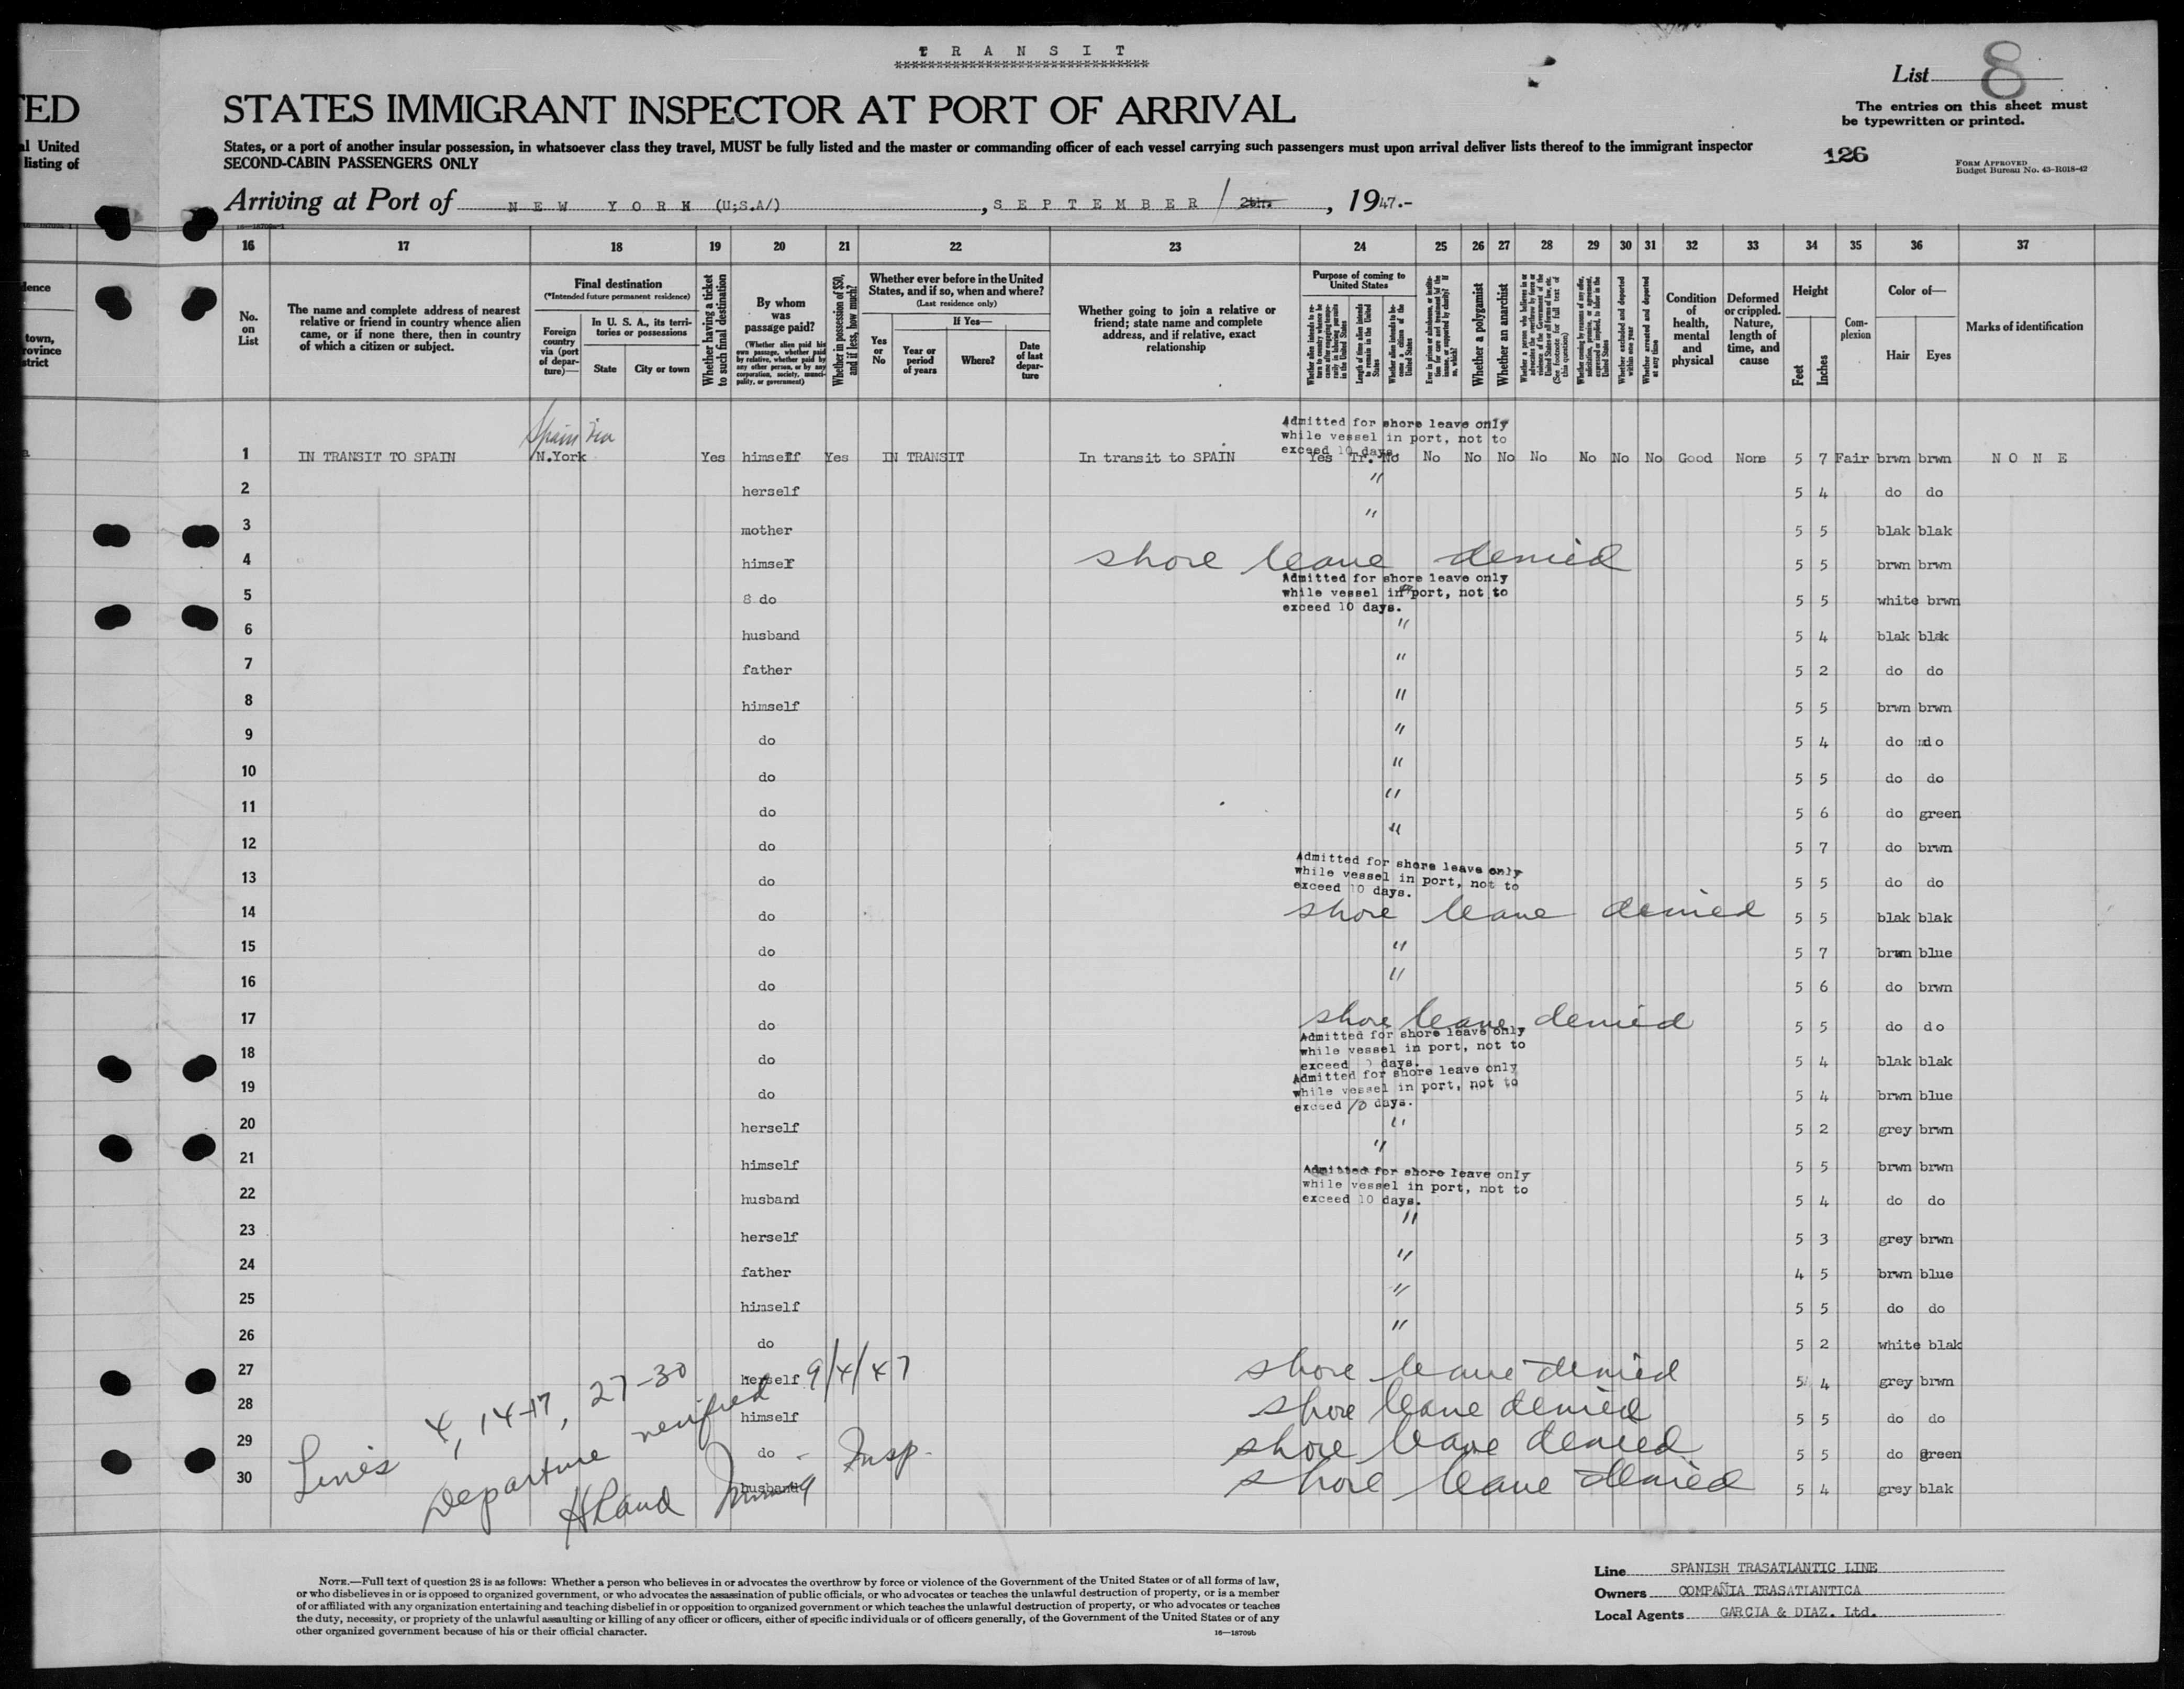 T R A N S I T
List 8
ED
STATES IMMIGRANT INSPECTOR AT PORT OF ARRIVAL
The entries on this sheet must
be typewritten or printed.
al United
listing of
States, or a port of another insular possession, in whatsoever class they travel, MUST be fully listed and the master or commanding officer of each vessel carrying such passengers must upon arrival deliver lists thereof to the immigrant inspector
SECOND-CABIN PASSENGERS ONLY
126
FORM APPROVED
Budget Bureau No. 43-R018-42
Arriving at Port of N E W Y O R K (U;S.A/) , S E P T E M B E R / 2th. , 1947.-
16 17 18 19 20 21 22 23 24 25 26 27 28 29 30 31 32 33 34 35 36 37
No. on List
The name and complete address of nearest relative or friend in country whence alien came, or if none there, then in country of which a citizen or subject.
Final destination
(*Intended future permanent residence)
Foreign country via (port of departure)—
In U. S. A., its territories or possessions
State
City or town
Whether having a ticket to such final destination
By whom was passage paid?
(Whether alien paid his own passage, whether paid by relative, whether paid by any other person, or by any corporation, society, municipality, or government)
Whether in possession of $50, and if less, how much?
Whether ever before in the United States, and if so, when and where?
(Last residence only)
Yes or No
If Yes—
Year or period of years
Where?
Date of last departure
Whether going to join a relative or friend; state name and complete address, and if relative, exact relationship
Purpose of coming to United States
Whether a polygamist
Whether an anarchist
Whether excluded and deported within one year
Whether arrested and deported at any time
Condition of health, mental and physical
Deformed or crippled. Nature, length of time, and cause
Height
Feet
Inches
Complexion
Color of—
Hair
Eyes
Marks of identification
Admitted for shore leave only
while vessel in port, not to
exceed 10 days.
Spain via
1 IN TRANSIT TO SPAIN N.York Yes himself Yes IN TRANSIT In transit to SPAIN Yes Tr. No No No No No No No No Good None 5 7 Fair brwn brwn N O N E
2 herself " 5 4 do do
3 mother " 5 5 blak blak
4 himsef shore leave denied 5 5 brwn brwn
Admitted for shore leave only
while vessel in port, not to
exceed 10 days.
5 8 do 5 5 white brwn
6 husband " 5 4 blak blak
7 father " 5 2 do do
8 himself " 5 5 brwn brwn
9 do " 5 4 do do
10 do " 5 5 do do
11 do " 5 6 do green
12 do " 5 7 do brwn
Admitted for shore leave only
while vessel in port, not to
exceed 10 days.
13 do 5 5 do do
14 do shore leave denied 5 5 blak blak
15 do " 5 7 brwn blue
16 do " 5 6 do brwn
17 do shore leave denied 5 5 do do
Admitted for shore leave only
while vessel in port, not to
exceed days.
18 do 5 4 blak blak
Admitted for shore leave only
while vessel in port, not to
exceed 10 days.
19 do 5 4 brwn blue
20 herself " 5 2 grey brwn
21 himself " 5 5 brwn brwn
Admitted for shore leave only
while vessel in port, not to
exceed 10 days.
22 husband 5 4 do do
23 herself " 5 3 grey brwn
24 father " 4 5 brwn blue
25 himself " 5 5 do do
26 do " 5 2 white blak
27 herself 9/4/47 shore leave denied 5 4 grey brwn
28 himself shore leave denied 5 5 do do
29 do shore leave denied 5 5 do green
30 husband shore leave denied 5 4 grey blak
Lines 4, 14-17, 27-30
Departure verified
Insp.
NOTE.—Full text of question 28 is as follows: Whether a person who believes in or advocates the overthrow by force or violence of the Government of the United States or of all forms of law,
or who disbelieves in or is opposed to organized government, or who advocates the assassination of public officials, or who advocates or teaches the unlawful destruction of property, or is a member
of or affiliated with any organization entertaining and teaching disbelief in or opposition to organized government or which teaches the unlawful destruction of property, or who advocates or teaches
the duty, necessity, or propriety of the unlawful assaulting or killing of any officer or officers, either of specific individuals or of officers generally, of the Government of the United States or of any
other organized government because of his or their official character.
16—18709b
Line SPANISH TRASATLANTIC LINE
Owners COMPAÑIA TRASATLANTICA
Local Agents GARCIA & DIAZ. Ltd.